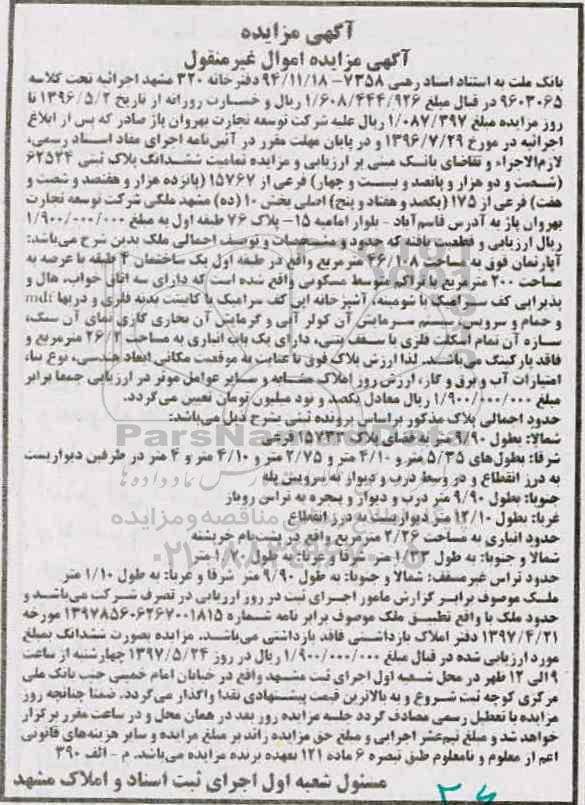 آگهی مزایده
آگهی مزایده اموال غیرمنقول
بانک ملت به استناد اسناد رهنی ۷۳۵۸-۹۴/۱۱/۱۸ دفترخانه ۳۲۰ مشهد اجرائیه تحت کلاسه
۹۶۰۳۰۶۵ در قبال مبلغ ۱/۶۰۸/۴۴۴/۹۲۶ ریال و خسارت روزانه از تاریخ ۱۳۹۶/۵/۲ تا
روز مزایده مبلغ ۱/۰۸۷/۳۹۷ ریال علیه شرکت توسعه تجارت بهروان پاژ صادر که پس از ابلاغ
اجرائیه در مورخ ۱۳۹۶/۷/۲۹ و در پایان مهلت مقرر در آئین‌نامه اجرای مفاد اسناد رسمی،
لازم‌الاجراء و تقاضای بانک مبنی بر ارزیابی و مزایده تمامیت ششدانگ پلاک ثبتی ۶۲۵۲۴
(شصت و دو هزار و پانصد و بیست و چهار) فرعی از ۱۵۷۶۷ (پانزده هزار و هفتصد و شصت و
هفت) فرعی از ۱۷۵ (یکصد و هفتاد و پنج) اصلی بخش ۱۰ (ده) مشهد ملکی شرکت توسعه تجارت
بهروان پاژ به آدرس قاسم‌آباد - بلوار امامیه ۱۵- پلاک ۷۶ طبقه اول به مبلغ ۱/۹۰۰/۰۰۰/۰۰۰
ریال ارزیابی و قطعیت یافته که حدود و مشخصات و توصیف اجمالی ملک بدین شرح می‌باشد:
آپارتمان فوق به مساحت ۴۶/۱۰۸ مترمربع واقع در طبقه اول یک ساختمان ۴ طبقه با عرصه به
مساحت ۲۰۰ مترمربع با تراکم متوسط مسکونی واقع شده است که دارای سه اتاق خواب، هال و
پذیرایی کف سرامیک با شومینه، آشپزخانه اپن کف سرامیک با کابینت بدنه فلزی و دربها mdf
و حمام و سرویس سیستم سرمایش آن کولر آبی و گرمایش آن بخاری گازی نمای آن سنگ،
سازه آن تمام اسکلت فلزی با سقف بتنی، دارای یک باب انباری به مساحت ۲۶/۲ مترمربع و
فاقد پارکینگ می‌باشند. لذا ارزش پلاک فوق با عنایت به موقعیت مکانی ابعاد هندسی، نوع بنا،
امتیازات آب و برق و گاز، ارزش روز املاک مشابه و سایر عوامل موثر در ارزیابی جمعا برابر
مبلغ ۱/۹۰۰/۰۰۰/۰۰۰ ریال معادل یکصد و نود میلیون تومان تعیین می‌گردد.
حدود اجمالی پلاک مذکور براساس پرونده ثبتی بشرح ذیل می‌باشد:
شمالا: بطول ۹/۹۰ متر به فضای پلاک ۱۵۷۳۲ فرعی
شرقا: بطول‌های ۵/۳۵ متر و ۴/۱۰ متر و ۲/۷۵ متر و ۴/۱۰ متر و ۴ متر در طرفین دیواریست
به درز انقطاع و در وسط درب و دیوار به سرویس پله
جنوبا: بطول ۹/۹۰ متر درب و دیوار و پنجره به تراس روباز
غربا: بطول ۱۲/۱۰ متر دیواریست به درز انقطاع
حدود انباری به مساحت ۲/۲۶ مترمربع واقع در پشت‌بام خرپشته
شمالا و جنوبا: به طول ۱/۳۳ متر شرقا و غربا: به طول ۱/۷۰ متر
حدود تراس غیرمسقف: شمالا و جنوبا: به طول ۹/۹۰ متر شرقا و غربا: به طول ۱/۱۰ متر
ملک موصوف برابر گزارش مامور اجرای ثبت در روز ارزیابی در تصرف شرکت می‌باشد و
حدود ملک با واقع تطبیق ملک موصوف برابر نامه شماره ۱۳۹۷۸۵۶۰۶۲۶۷۰۰۱۸۱۵ مورخه
۱۳۹۷/۴/۲۱ دفتر املاک بازداشتی فاقد بازداشتی می‌باشد. مزایده بصورت ششدانگ بمبلغ
مورد ارزیابی شده در قبال مبلغ ۱/۹۰۰/۰۰۰/۰۰۰ ریال در روز ۱۳۹۷/۵/۲۴ چهارشنبه از ساعت
۹ الی ۱۲ ظهر در محل شعبه اول اجرای ثبت مشهد واقع در خیابان امام خمینی جنب بانک ملی
مرکزی کوچه ثبت شروع و به بالاترین قیمت پیشنهادی نقدا واگذار می‌گردد. ضمنا چنانچه روز
مزایده با تعطیل رسمی مصادف گردد جلسه مزایده روز بعد در همان محل و در ساعت مقرر برگزار
خواهد شد و مبلغ نیم‌عشر اجرایی و مبلغ حق مزایده زائد بر مبلغ مزایده و سایر هزینه‌های قانونی
اعم از معلوم و نامعلوم طبق تبصره ۶ ماده ۱۲۱ بعهده برنده مزایده می‌باشد. م - الف ۳۹۰
مسئول شعبه اول اجرای ثبت اسناد و املاک مشهد